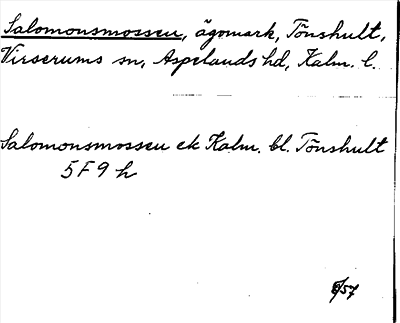 Salomonsmossen, ägomark, Tönshult,
Virserums sn, Aspelands hd, Kalm. l.
Salomonsmossen ek Kalm. bl. Tönshult
5F9h
/57